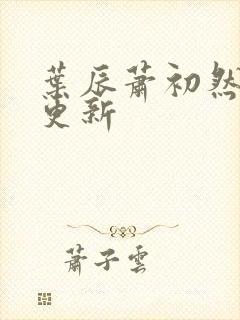 葉辰蕭初然
更新
蕭子雲